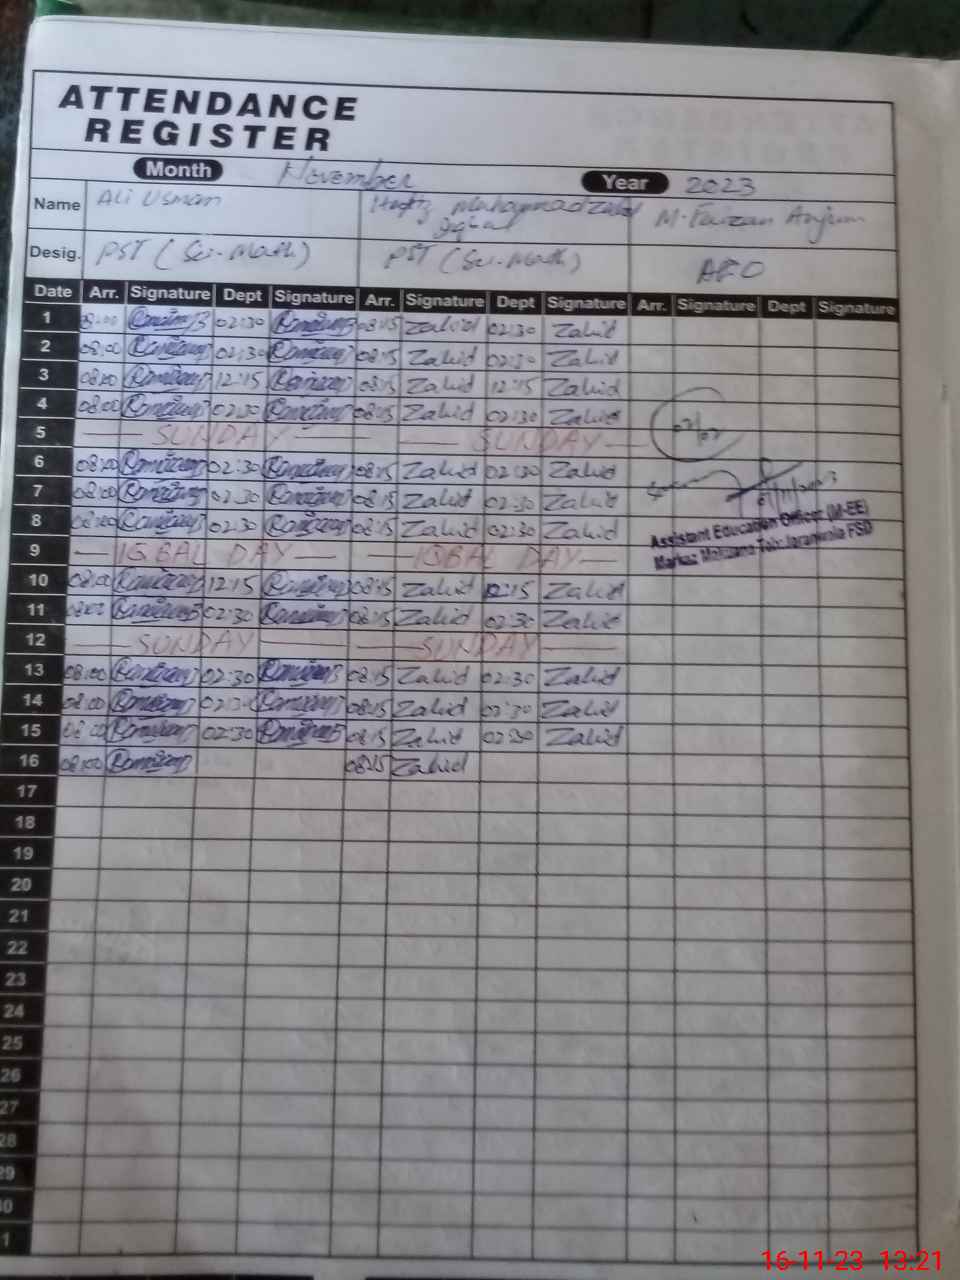 ATTENDANCE
REGISTER
Month November Year 2023
Name Ali Usman Hafiz Muhammad Zahid Iqbal M. Faizan Anjum
Desig. PST (Sci-Math) PST (Sci-Math) AEO
Date Arr. Signature Dept Signature Arr. Signature Dept Signature Arr. Signature Dept Signature
1 08:00 02:30 08:15 Zahid 02:30 Zahid
2 08:00 02:30 08:15 Zahid 02:30 Zahid
3 08:00 12:15 08:15 Zahid 12:15 Zahid
4 08:00 02:30 08:15 Zahid 02:30 Zahid
5 SUNDAY SUNDAY 02/02
6 08:00 02:30 08:15 Zahid 02:30 Zahid
7 08:00 02:30 08:15 Zahid 02:30 Zahid
8 08:00 02:30 08:15 Zahid 02:30 Zahid
Assistant Education Officer (M-EE)
9 IQBAL DAY IQBAL DAY
10 08:00 12:15 08:15 Zahid 12:15 Zahid
11 08:00 02:30 08:15 Zahid 02:30 Zahid
12 SUNDAY SUNDAY
13 08:00 02:30 08:15 Zahid 02:30 Zahid
14 08:00 02:30 08:15 Zahid 02:30 Zahid
15 08:00 02:30 08:15 Zahid 02:30 Zahid
16 08:00 08:15 Zahid
17
18
19
20
21
22
23
24
25
26
27
28
29
0
1
16-11-23 13:21